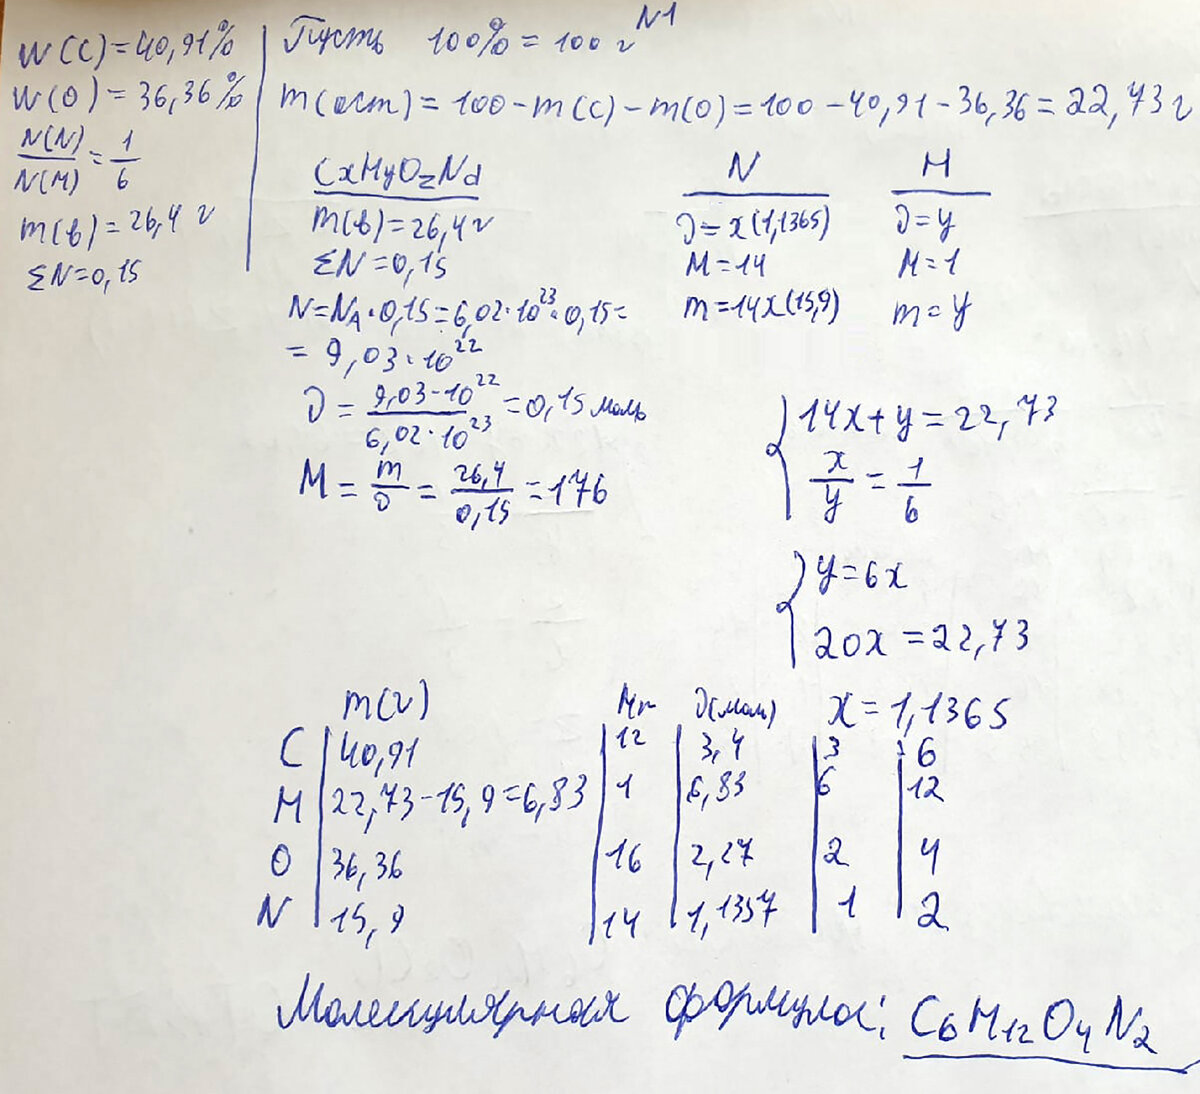 N1
W(C)=40,91%
W(O)=36,36%
N(N)/N(H)=1/6
m(в)=26,4 г
ΣN=0,15
Пусть 100%=100 г
m(ост)=100-m(C)-m(O)=100-40,91-36,36=22,73 г
CxHyOzNd
m(в)=26,4 г
ΣN=0,15
N=NA·0,15=6,02·10^23·0,15=
=9,03·10^22
ν=9,03·10^22/6,02·10^23=0,15 моль
M=m/ν=26,4/0,15=176
N
ν=x(1,1365)
M=14
m=14x(15,9)
H
ν=y
M=1
m=y
14x+y=22,73
x/y=1/6
y=6x
20x=22,73
x=1,1365
m(г) Mr ν(моль)
C 40,91 12 3,4 3 6
H 22,73-15,9=6,83 1 6,83 6 12
O 36,36 16 2,27 2 4
N 15,9 14 1,1357 1 2
Молекулярная формула: C6H12O4N2